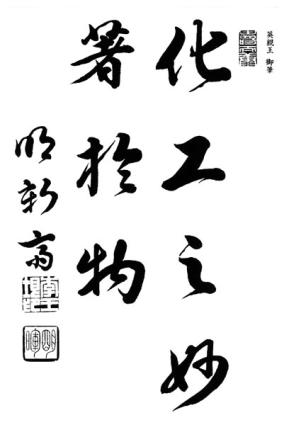 英親王 御筆
化工之妙
著於物
明新齋